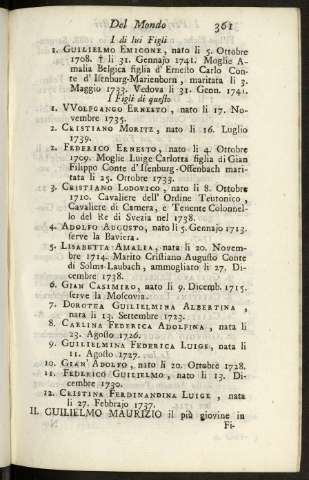 Del Mondo 361
I di lui Figli
1. GUILIELMO EMICONE, nato li 5. Ottobre
1708. † li 31. Gennajo 1741. Moglie A-
malia Belgica figlia d'Ernesto Carlo Con-
te d'Isenburg-Marienborn, maritata li 3.
Maggio 1733. Vedova li 31. Genn. 1741.
I Figli di questo
1. VVOLFGANGO ERNESTO, nato li 17. No-
vembre 1735.
2. CRISTIANO MORITZ, nato li 16. Luglio
1739.
2. FEDERICO ERNESTO, nato li 4. Ottobre
1709. Moglie Luige Carlotta figlia di Gian
Filippo Conte d'Isenburg-Offenbach mari-
tata li 25. Ottobre 1733.
3. CRISTIANO LODOVICO, nato li 8. Ottobre
1710. Cavaliere dell' Ordine Teutonico,
Cavaliere di Camera, e Tenente Colonnel-
lo del Re di Svezia nel 1738.
4. ADOLFO AUGUSTO, nato li 5. Gennajo 1713.
serve la Baviera.
5. LISABETTA AMALIA, nata li 20. Novem-
bre 1714. Marito Cristiano Augusto Conte
di Solms-Laubach, ammogliato li 27. Di-
cembre 1738.
6. GIAN CASIMIRO, nato li 9. Dicemb. 1715.
serve la Moscovia.
7. DOROTEA GUILIELMINA ALBERTINA,
nata li 13. Settembre 1723.
8. CARLINA FEDERICA ADOLFINA, nata li
23. Agosto 1726.
9. GUILIELMINA FEDERICA LUIGE, nata li
11. Agosto 1727.
10. GIAN' ADOLFO, nato li 20. Ottobre 1728.
11. FEDERICO GUILIELMO, nato li 13. Di-
cembre 1730.
12. CRISTINA FERDINANDINA LUIGE, nata
li 27. Febbrajo 1737.
II. GUILIELMO MAURIZIO il più giovine in
Fi-